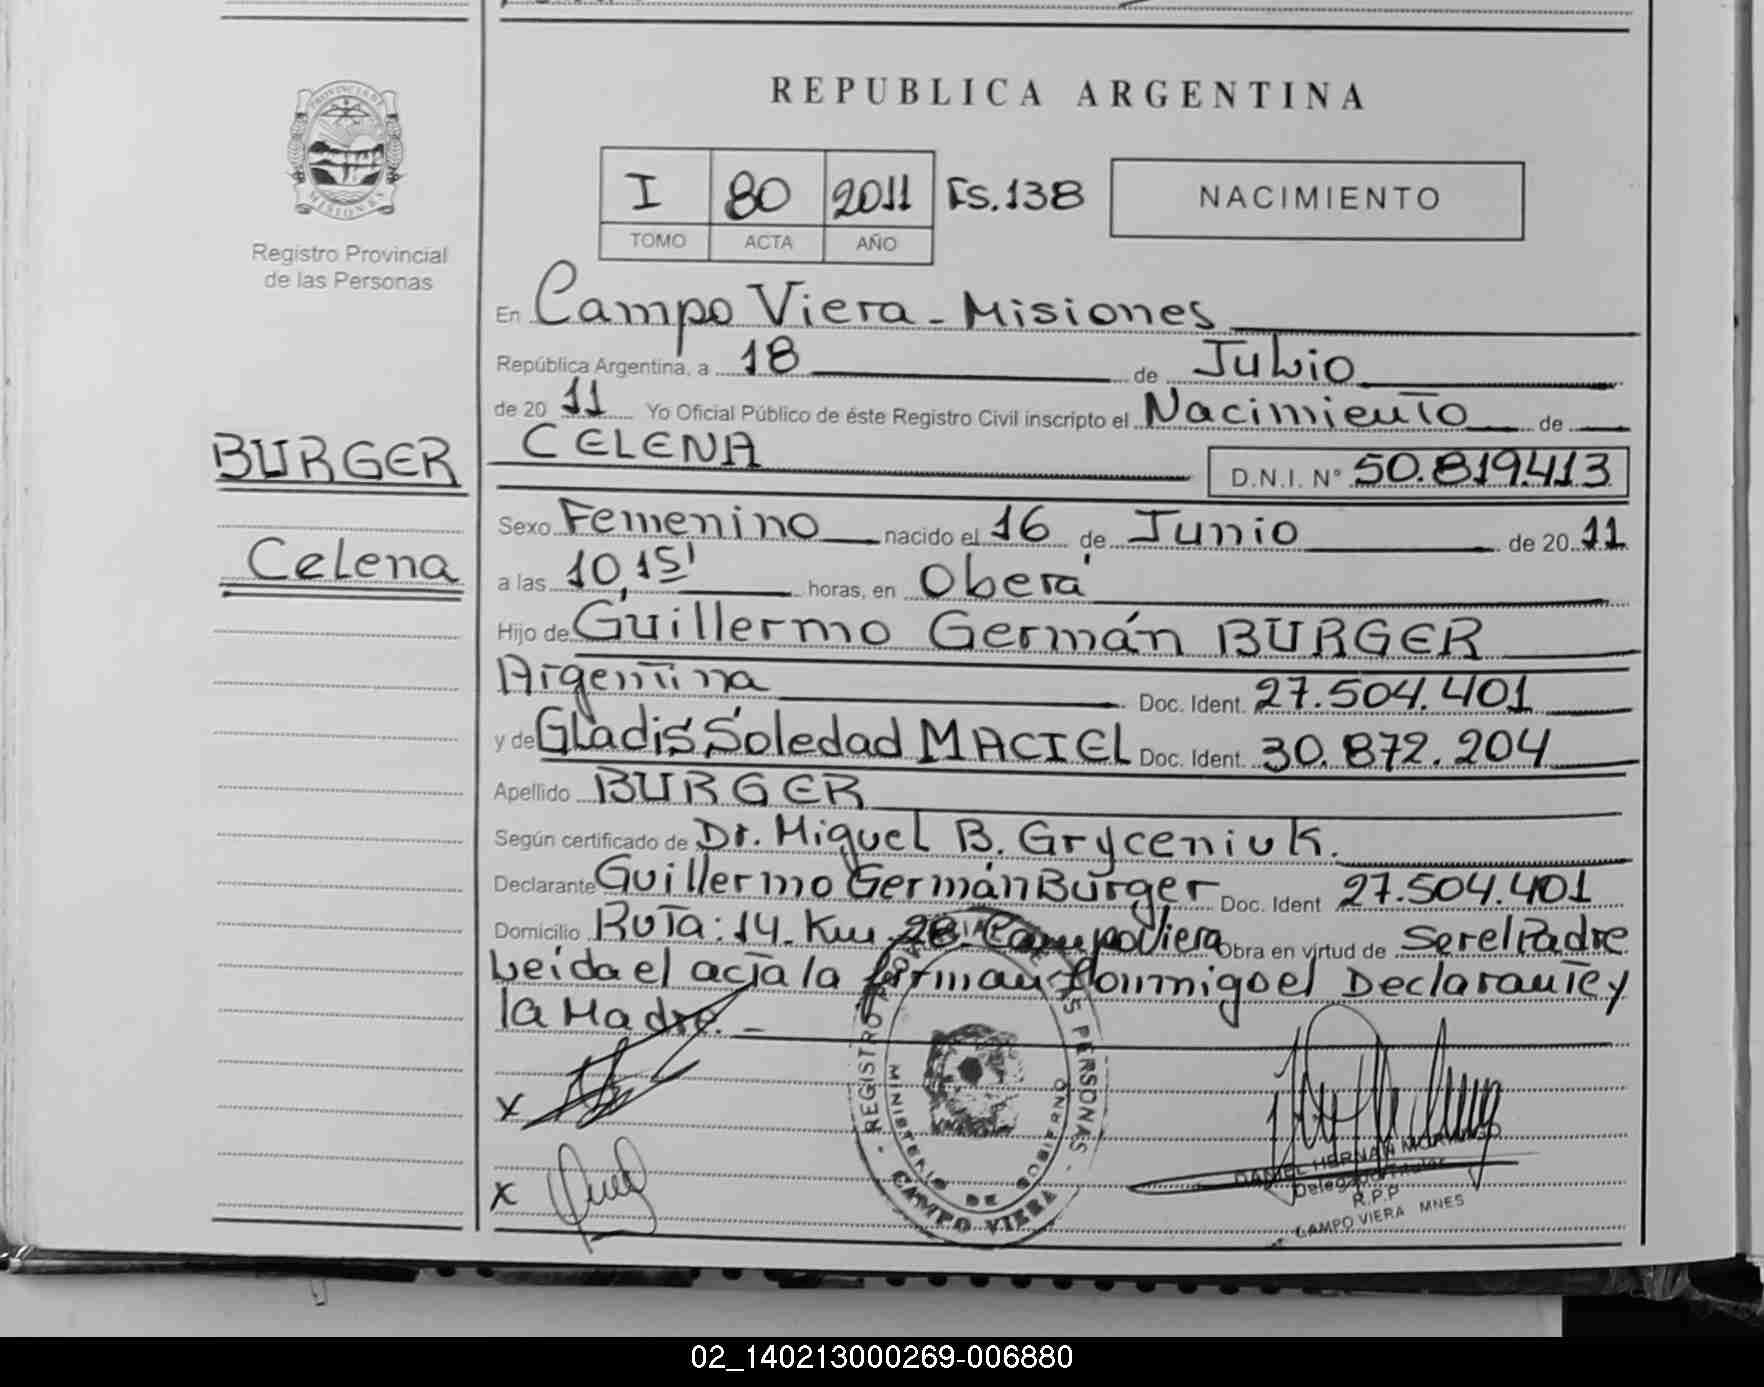 REPUBLICA ARGENTINA
PROVINCIA DE MISIONES
Registro Provincial
de las Personas
I 80 2011 Fs.138
TOMO ACTA AÑO
NACIMIENTO
En Campo Viera - Misiones
República Argentina, a 18 de Julio
de 20 11 Yo Oficial Público de éste Registro Civil inscripto el Nacimiento de
BURGER
CELENA
D.N.I. N° 50.819.413
Celena
Sexo Femenino nacido el 16 de Junio de 20 11
a las 10,15' horas, en Oberá
Hijo de Guillermo Germán BURGER
Argentina Doc. Ident. 27.504.401
y de Gladis Soledad MACIEL Doc. Ident. 30.872.204
Apellido BURGER
Según certificado de Dr. Miguel B. Gryceniuk.
Declarante Guillermo Germán Burger Doc. Ident 27.504.401
Domicilio Ruta: 14. Km 28. Campo Viera Obra en virtud de Ser el Padre
Leída el acta la firman conmigo el Declarante y
la Madre. -
x
x
REGISTRO PROVINCIAL DE LAS PERSONAS
MINISTERIO DE GOBIERNO
CAMPO VIERA
DANIEL HERNAN
Delegado Titular
R.P.P
CAMPO VIERA MNES
02_140213000269-006880